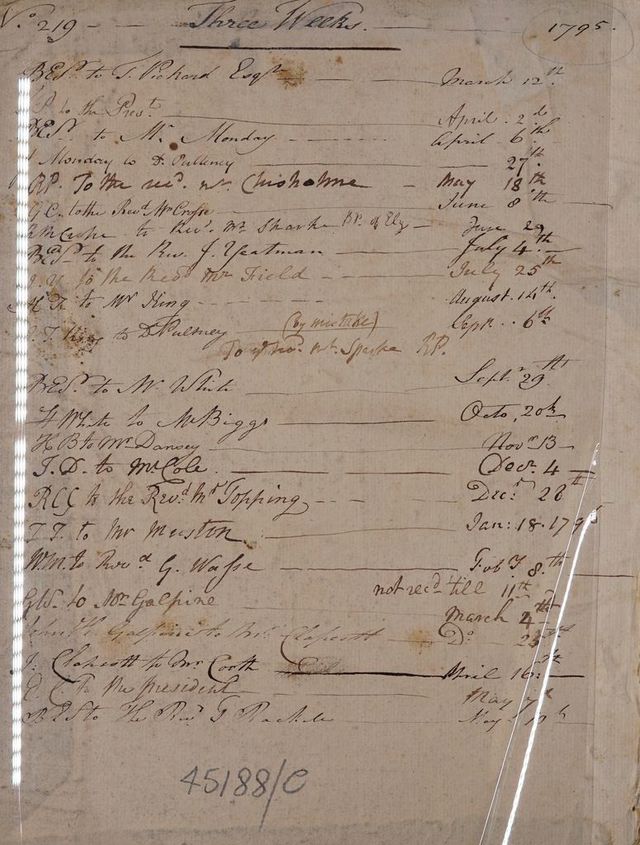 No. 219 — Three Weeks. 1795.
to T. Pickard Esqr. March 12th.
to the Prest. April 2d
to Mr. Monday April 6th
Monday to D. Pulteney 27th
RP. To the recd. Mr. Chisholme May 18th
GC. to the Revd. Mr Crosse June 8th
to Revd. Mr Sparke BP. of Ely June 29
to the Rev. J. Yeatman July 4th
to the Revd Mr Field July 25th
to Mr King August 14th.
King to D. Pulteney (by mistake) Sepr. 6th
To Mr. Sparke RP.
to Mr. White Septr. 29th
White to Mr Biggs Octo. 20th
HB to Mr Dansey Novr. 13
J. D. to Mr Cole. Decr. 4
to the Revd. Mr. Topping Decr. 28th
T. T. to Mr Muston Jan: 18. 1796
W.M. to Revd G. Wasse Feby 8th
not recd till 11th
GW. to Mr Galpine March 4th
Galpine to Mr. Clapcott Do. 23rd
J. Clapcott to Mr Cooth April 16th
to the President May
to The Revd. J Rackett May
45188/C